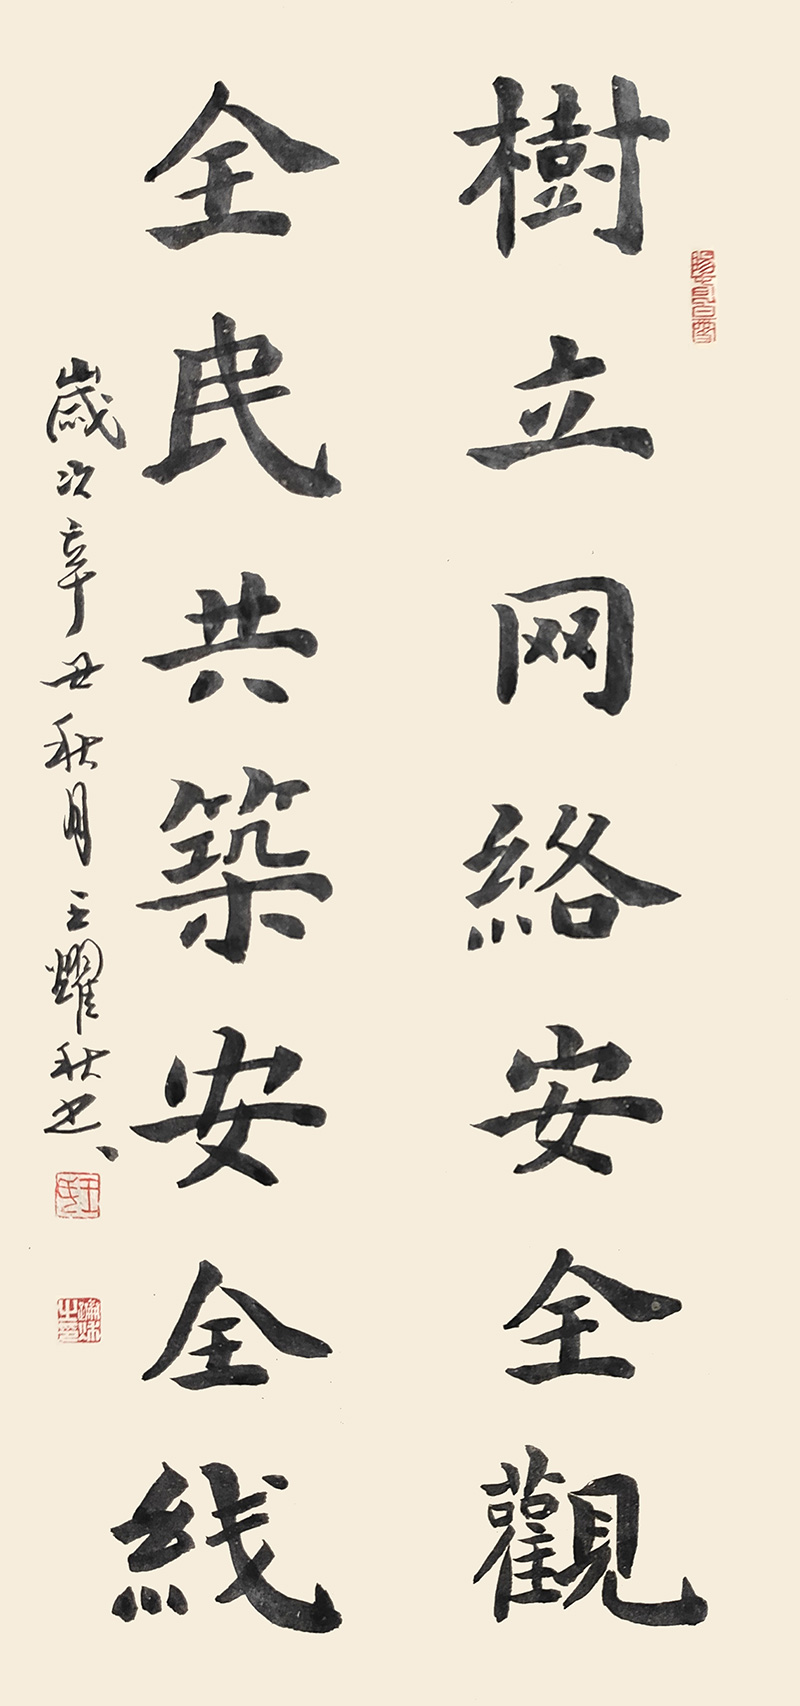 樹立网絡安全觀
全民共築安全线
歲次辛丑秋月王耀秋书